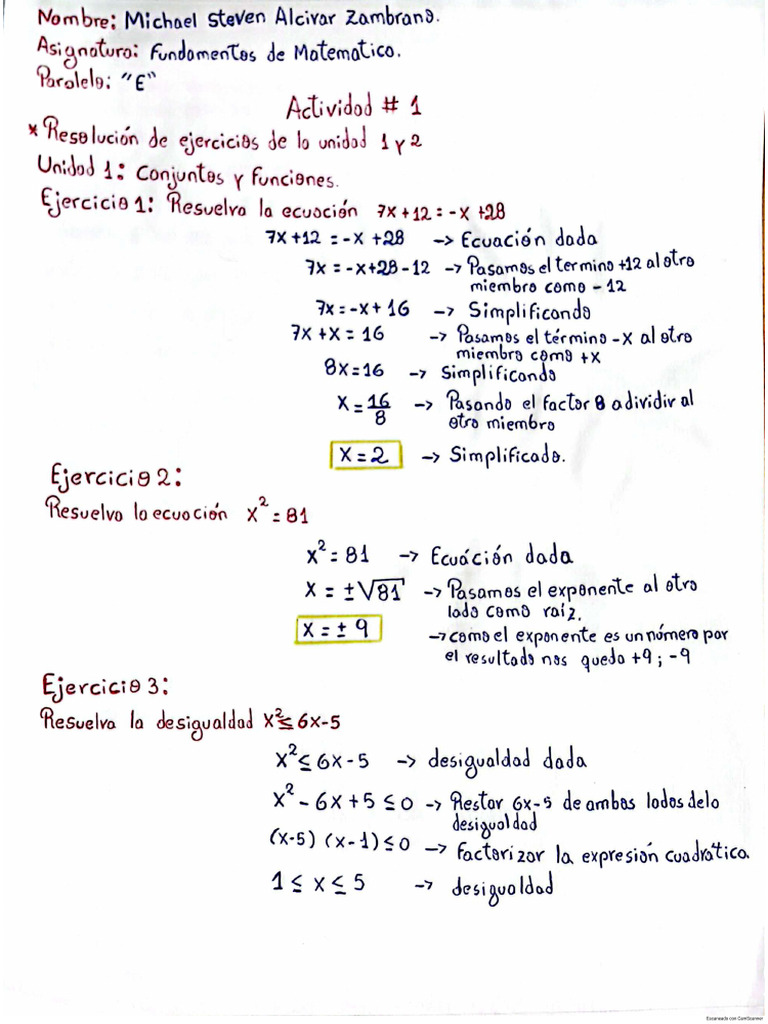 Nombre: Michael Steven Alcivar Zambrano.
Asignatura: Fundamentos de Matematica.
Paralelo: "E"
Actividad # 1
* Resolución de ejercicios de la unidad 1 y 2
Unidad 1: Conjuntos y Funciones.
Ejercicio 1: Resuelva la ecuación 7x+12 = -x +28
7x+12 = -x +28 -> Ecuación dada
7x = -x+28-12 -> Pasamos el termino +12 al otro
miembro como - 12
7x = -x + 16 -> Simplificando
7x +x = 16 -> Pasamos el término -x al otro
miembro como +x
8x = 16 -> Simplificando
x = 16/8 -> Pasando el factor 8 a dividir al
otro miembro
x = 2 -> Simplificado.
Ejercicio 2:
Resuelva la ecuación x² = 81
x² = 81 -> Ecuáción dada
x = ±√81 -> Pasamos el exponente al otro
lado como raíz.
x = ± 9 -> como el exponente es un número par
el resultado nos queda +9 ; -9
Ejercicio 3:
Resuelva la desigualdad x² ≤ 6x-5
x² ≤ 6x - 5 -> desigualdad dada
x² - 6x + 5 ≤ 0 -> Restar 6x-5 de ambos lados de la
desigualdad
(x-5) (x-1) ≤ 0 -> factorizar la expresión cuadrática.
1 ≤ x ≤ 5 -> desigualdad
Escaneado con CamScanner